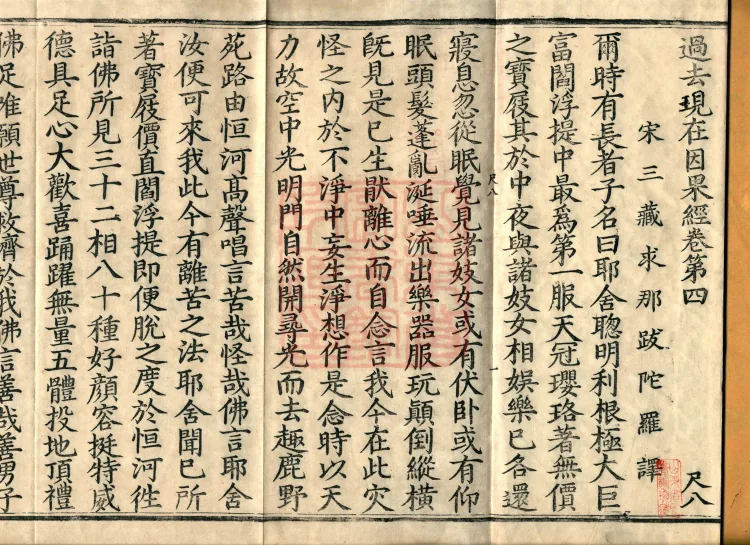 過去現在因果經卷第四
尺八
宋三藏求那跋陀羅譯
爾時有長者子名曰耶舍聰明利根極大巨
富閻浮提中最爲第一服天冠瓔珞著無價
之寶屐其於中夜與諸妓女相娛樂已各還
寢息忽從眠覺見諸妓女或有伏卧或有仰
尺八
眠頭髮蓬亂涎唾流出樂器服玩顚倒縱横
旣見是已生猒離心而自念言我今在此灾
怪之内於不淨中妄生淨想作是念時以天
力故空中光明門自然開尋光而去趣鹿野
苑路由恒河髙聲唱言苦哉怪哉佛言耶舍
汝便可來我此今有離苦之法耶舍聞已所
著寶屐價直閻浮提即便脫之度於恒河徃
詣佛所見三十二相八十種好顔容挺特威
德具足心大歡喜踊躍無量五體投地頂禮
佛足唯願世尊救濟於我佛言善哉善男子